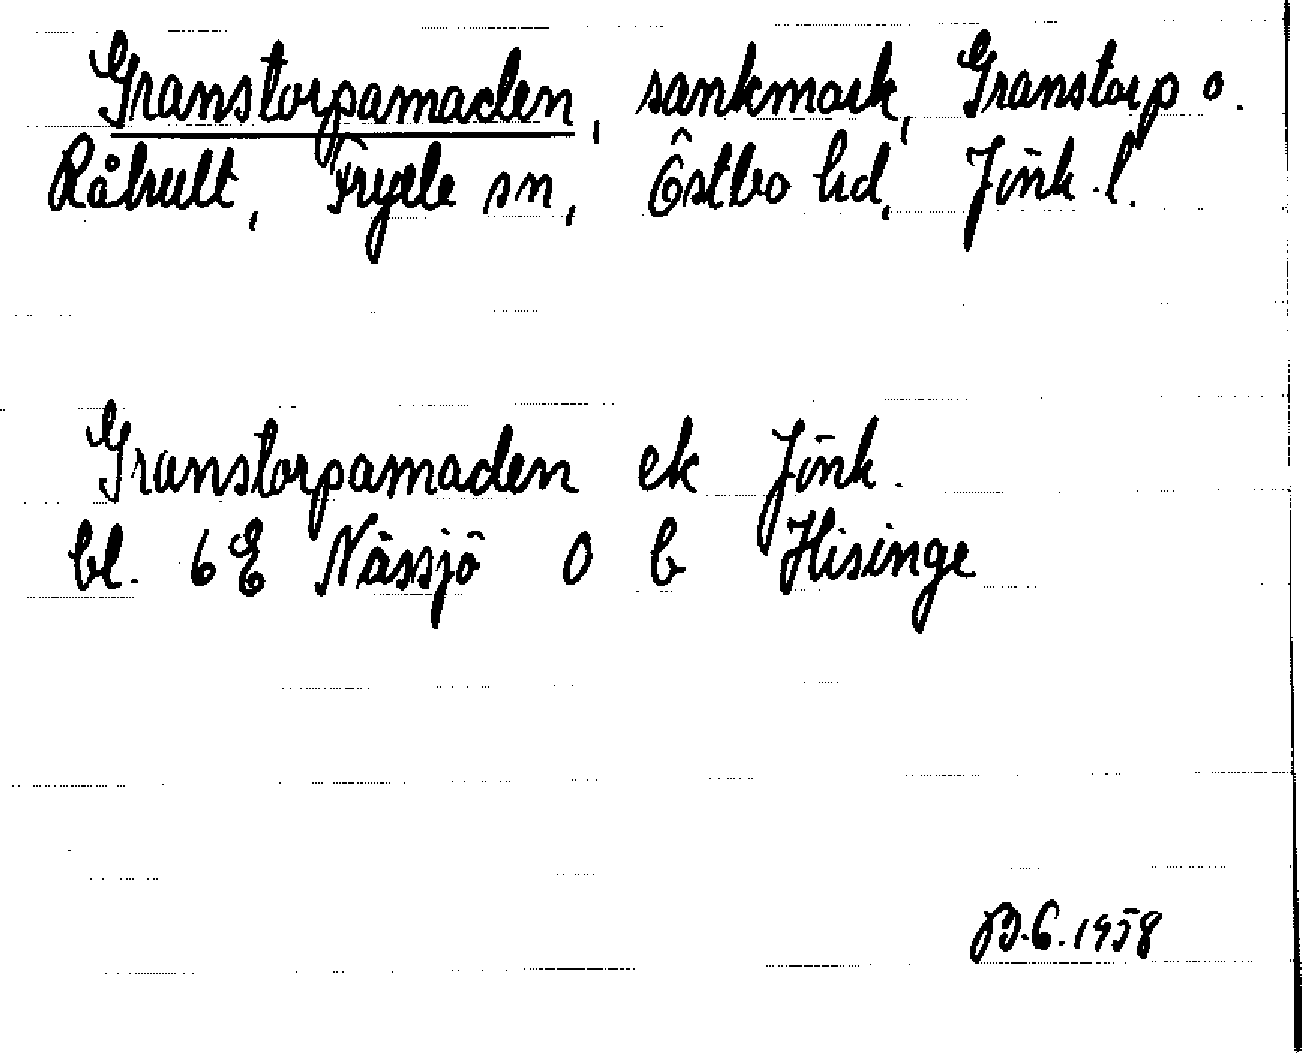 Granstorpamaden, sankmark, Granstorp o.
Råhult, Fryele sn, Östbo hd, Jönk. l.
Granstorpamaden ek Jönk.
bl. 6E Nässjö 0 b Hisinge
B.C. 1958